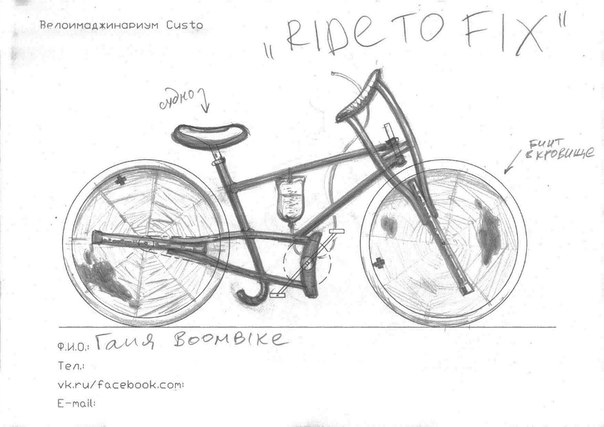 Велоимаджинариум Custo
"RIDE TO FIX"
судно
БИНТ
В КРОВИЩЕ
Ф.И.О.: Галя BOOMBIKE
Тел.:
vk.ru/facebook.com:
E-mail: